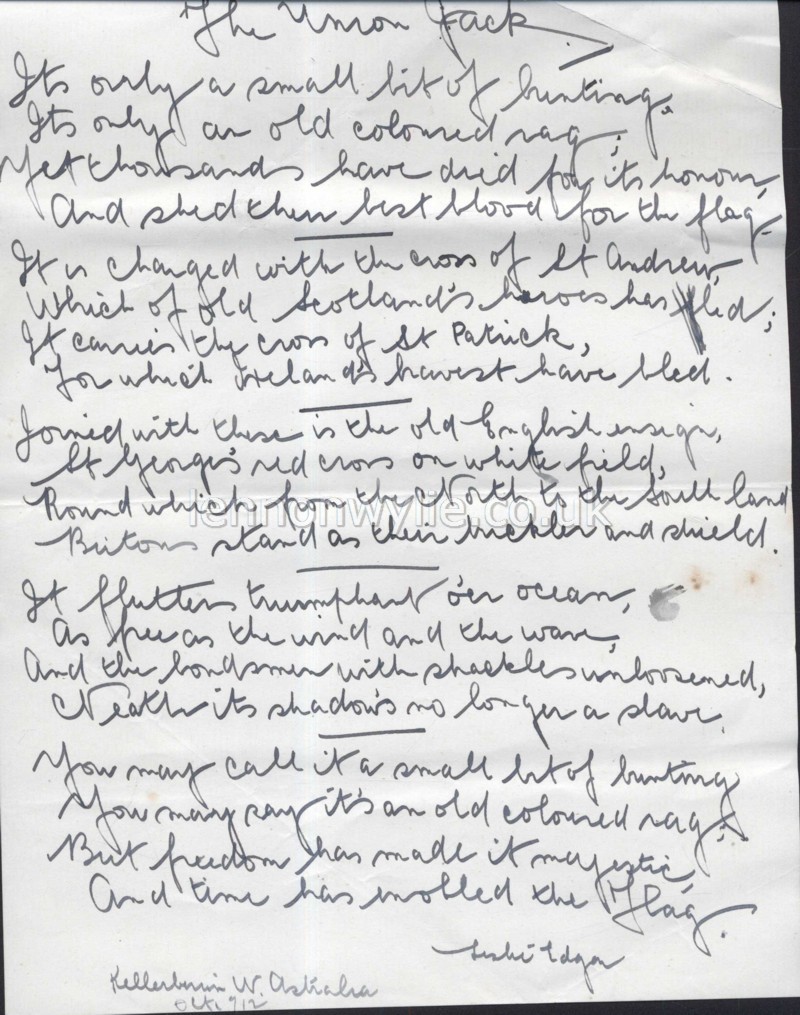 The Union Jack
Its only a small bit of bunting,
Its only an old coloured rag;
Yet thousands have died for its honour,
And shed their best blood for the flag.
It is changed with the cross of St Andrew,
Which of old Scotland's heroes has led;
It carries the cross of St Patrick,
For which Ireland's bravest have bled.
Joined with these is the old English ensign,
St George's red cross on white field,
Round which from the North to the South land
Britons stand as their buckler and shield.
It flutters triumphant o'er ocean,
As free as the wind and the wave,
And the bondsmen with shackles unloosened,
'Neath its shadow's no longer a slave.
You may call it a small bit of bunting
You may say it's an old coloured rag;
But freedom has made it majestic,
And time has enobled the Flag.
Leslie Edgar
Kellerberrin W. Astralia
Oct.
lennonwylie.co.uk